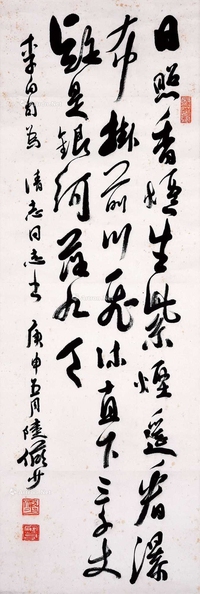 日照香爐生紫煙遥看瀑
布掛前川飛沫直下三千丈
疑是銀河落九天
李白句為 清志同志書 庚申五月陸儼少